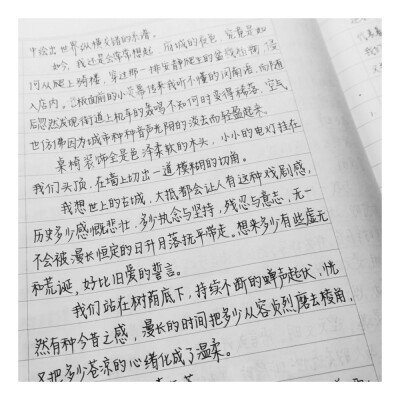 中绘出世界纵横交错的乐谱。
如今,我还是会常常想起,府城的夜色,究竟是如
何从爬上骑楼,穿过那一排安静爬上的盆栽植物,漫
入店内。老板面前的小
后忽然发现街道上机车的轰鸣不知何时变得稀落,空气
也仿佛因为城市种种音声光阴的淡去而轻盈起来。
桌椅装饰全是色泽柔软的木头,小小的电灯挂在
我们头顶,在墙上切出一道模糊的切角。
我想世上的古城,大抵都会让人有这种戏剧感,
历史多少感慨悲壮,多少执念与坚持,残忍与意志,无一
不会被漫长恒定的日升月落抚平带走。想来多少有些虚无
和荒诞,好比旧爱的誓言。
我们站在树荫底下,持续不断的蝉声起伏,恍
然有种今昔之感,漫长的时间把多少从容贞烈磨去棱角,
又把多少苍凉的心绪化成了温柔。